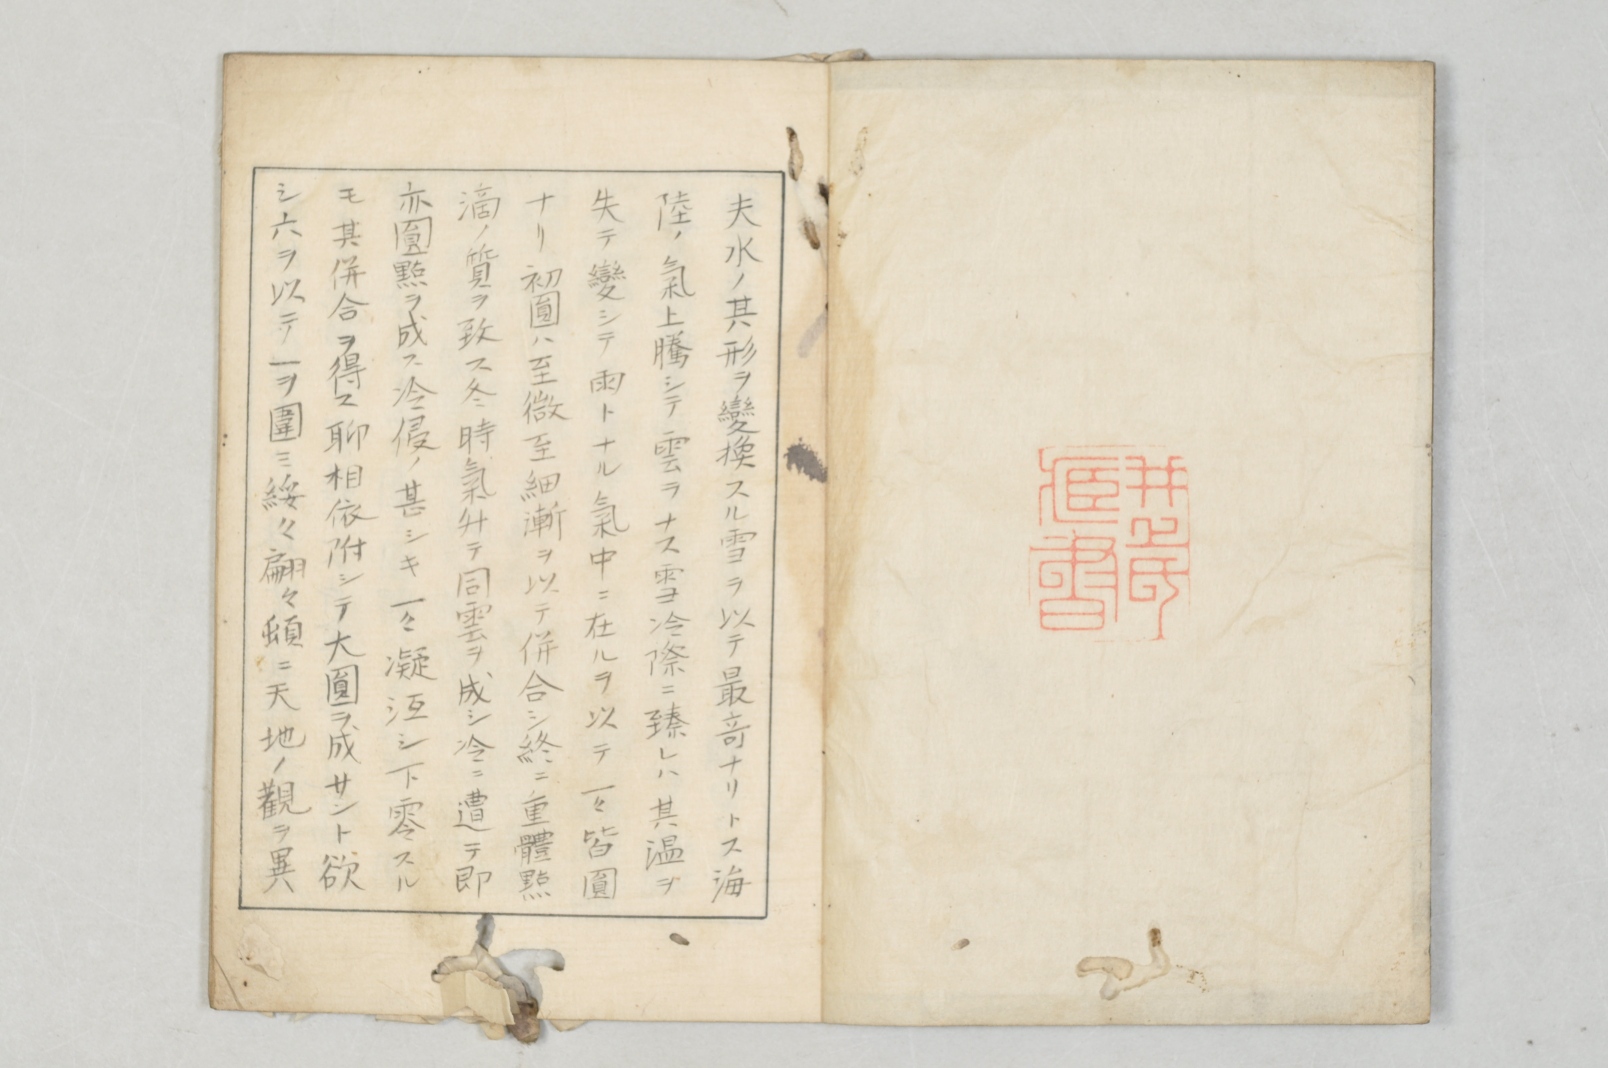 井口氏
蔵書
夫水ノ其形ヲ變換スル雪ヲ以テ最竒ナリトス海
陸ノ氣上騰シテ雲ヲナス雲冷際ニ臻レハ其温ヲ
失テ變シテ雨トナル氣中ニ在ルヲ以テ一々皆圓
ナリ初圓ハ至微至細漸ヲ以テ併合シ終ニ重體點
滴ノ質ヲ致ス冬時氣升テ同雲ヲ成シ冷ニ遭テ即
亦圓點ヲ成ス冷侵ノ甚シキ一々凝沍シ下零スル
モ其併合ヲ得ス聊相依附シテ大圓ヲ成サント欲
シ六ヲ以テ一ヲ圍ミ綏々翩々頓ニ天地ノ觀ヲ異